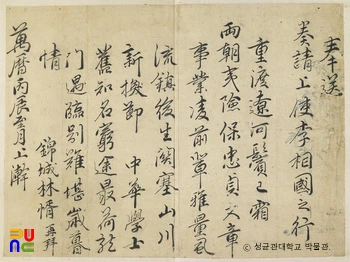 奉送
奏請上使李相國之行
重渡遼河鬢已霜
兩朝夷險保忠貞文章
事業凌前輩雅量風
流鎭後生關塞山川
新換節 中華學士
舊知名窮途最荷龍
門遇臨別難堪歲暮
情 錦城林㥠 再拜
萬曆丙辰至月上澣
ⓒ 성균관대학교 박물관.